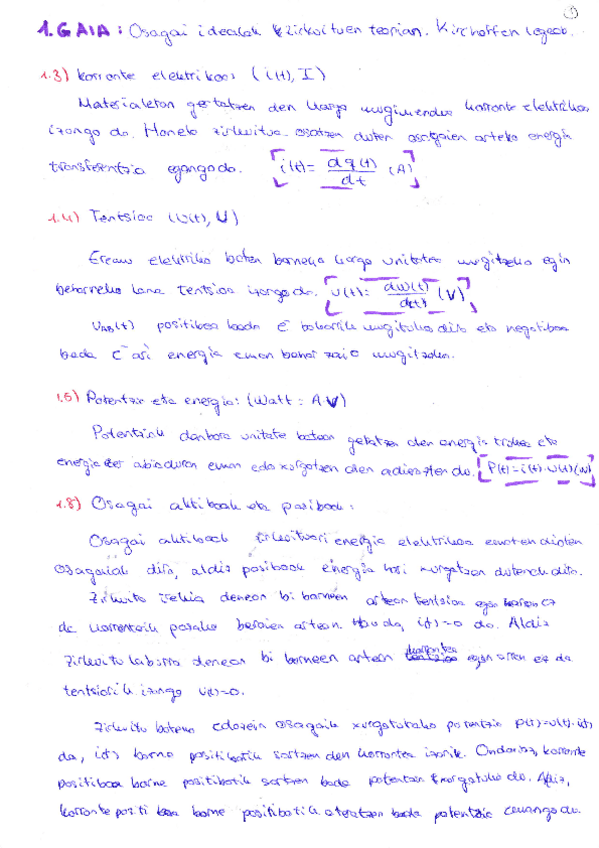 1
1. GAIA: Osagai idealak zirkuituen teorian. Kirchoffen legeak.
1.3) korronte elektrikoa: (i(t), I)
Materialetan gertatzen den karga mugimendua korronte elektrikoa
izango da. Honek zirkuitua osatzen duten osagaien arteko energia
transferentzia egongo da. i(t) = dq(t)/dt (A)
1.4) Tentsioa (u(t), U)
Eremu elektriko baten barneko karga unitatea mugitzeko egin
beharreko lana tentsioa izango da. u(t) = dw(t)/dq(t) (V)
UAB(t) positiboa bada e⁻ bakarrik mugituko dira eta negatiboa
bada e⁻ari energia eman behar zaio mugitzeko.
1.5) Potentzia eta energia: (Watt = A·V)
Potentziak denbora unitate batean gertatzen den energia trukea eta
energia zer abiaduran eman edo xurgatzen den adierazten du. P(t) = i(t)·u(t) (W)
1.8) Osagai aktiboak eta pasiboak:
Osagai aktiboak zirkuituari energia elektrikoa ematen dioten
osagaiak dira, aldiz pasiboak energia hori xurgatzen dutenak dira.
Zirkuitu irekia denean bi borneen artean tentsioa egon arren ez
da korronterik pasako beraien artean. Hau da, i(t)=0 da. Aldiz
zirkuitu laburra denean bi borneen artean korrontea egon arren ez da
tentsiorik izango u(t)=0.
Zirkuitu bateko edozein osagaik xurgatutako potentzia p(t)=u(t)·i(t)
da, i(t) borne positibotik sartzen den korrontea izanik. Ondorioz, korronte
positiboa borne positibotik sartzen bada potentzia xurgatuko du. Aldiz,
korronte positiboa borne positibotik ateratzen bada potentzia emango du.